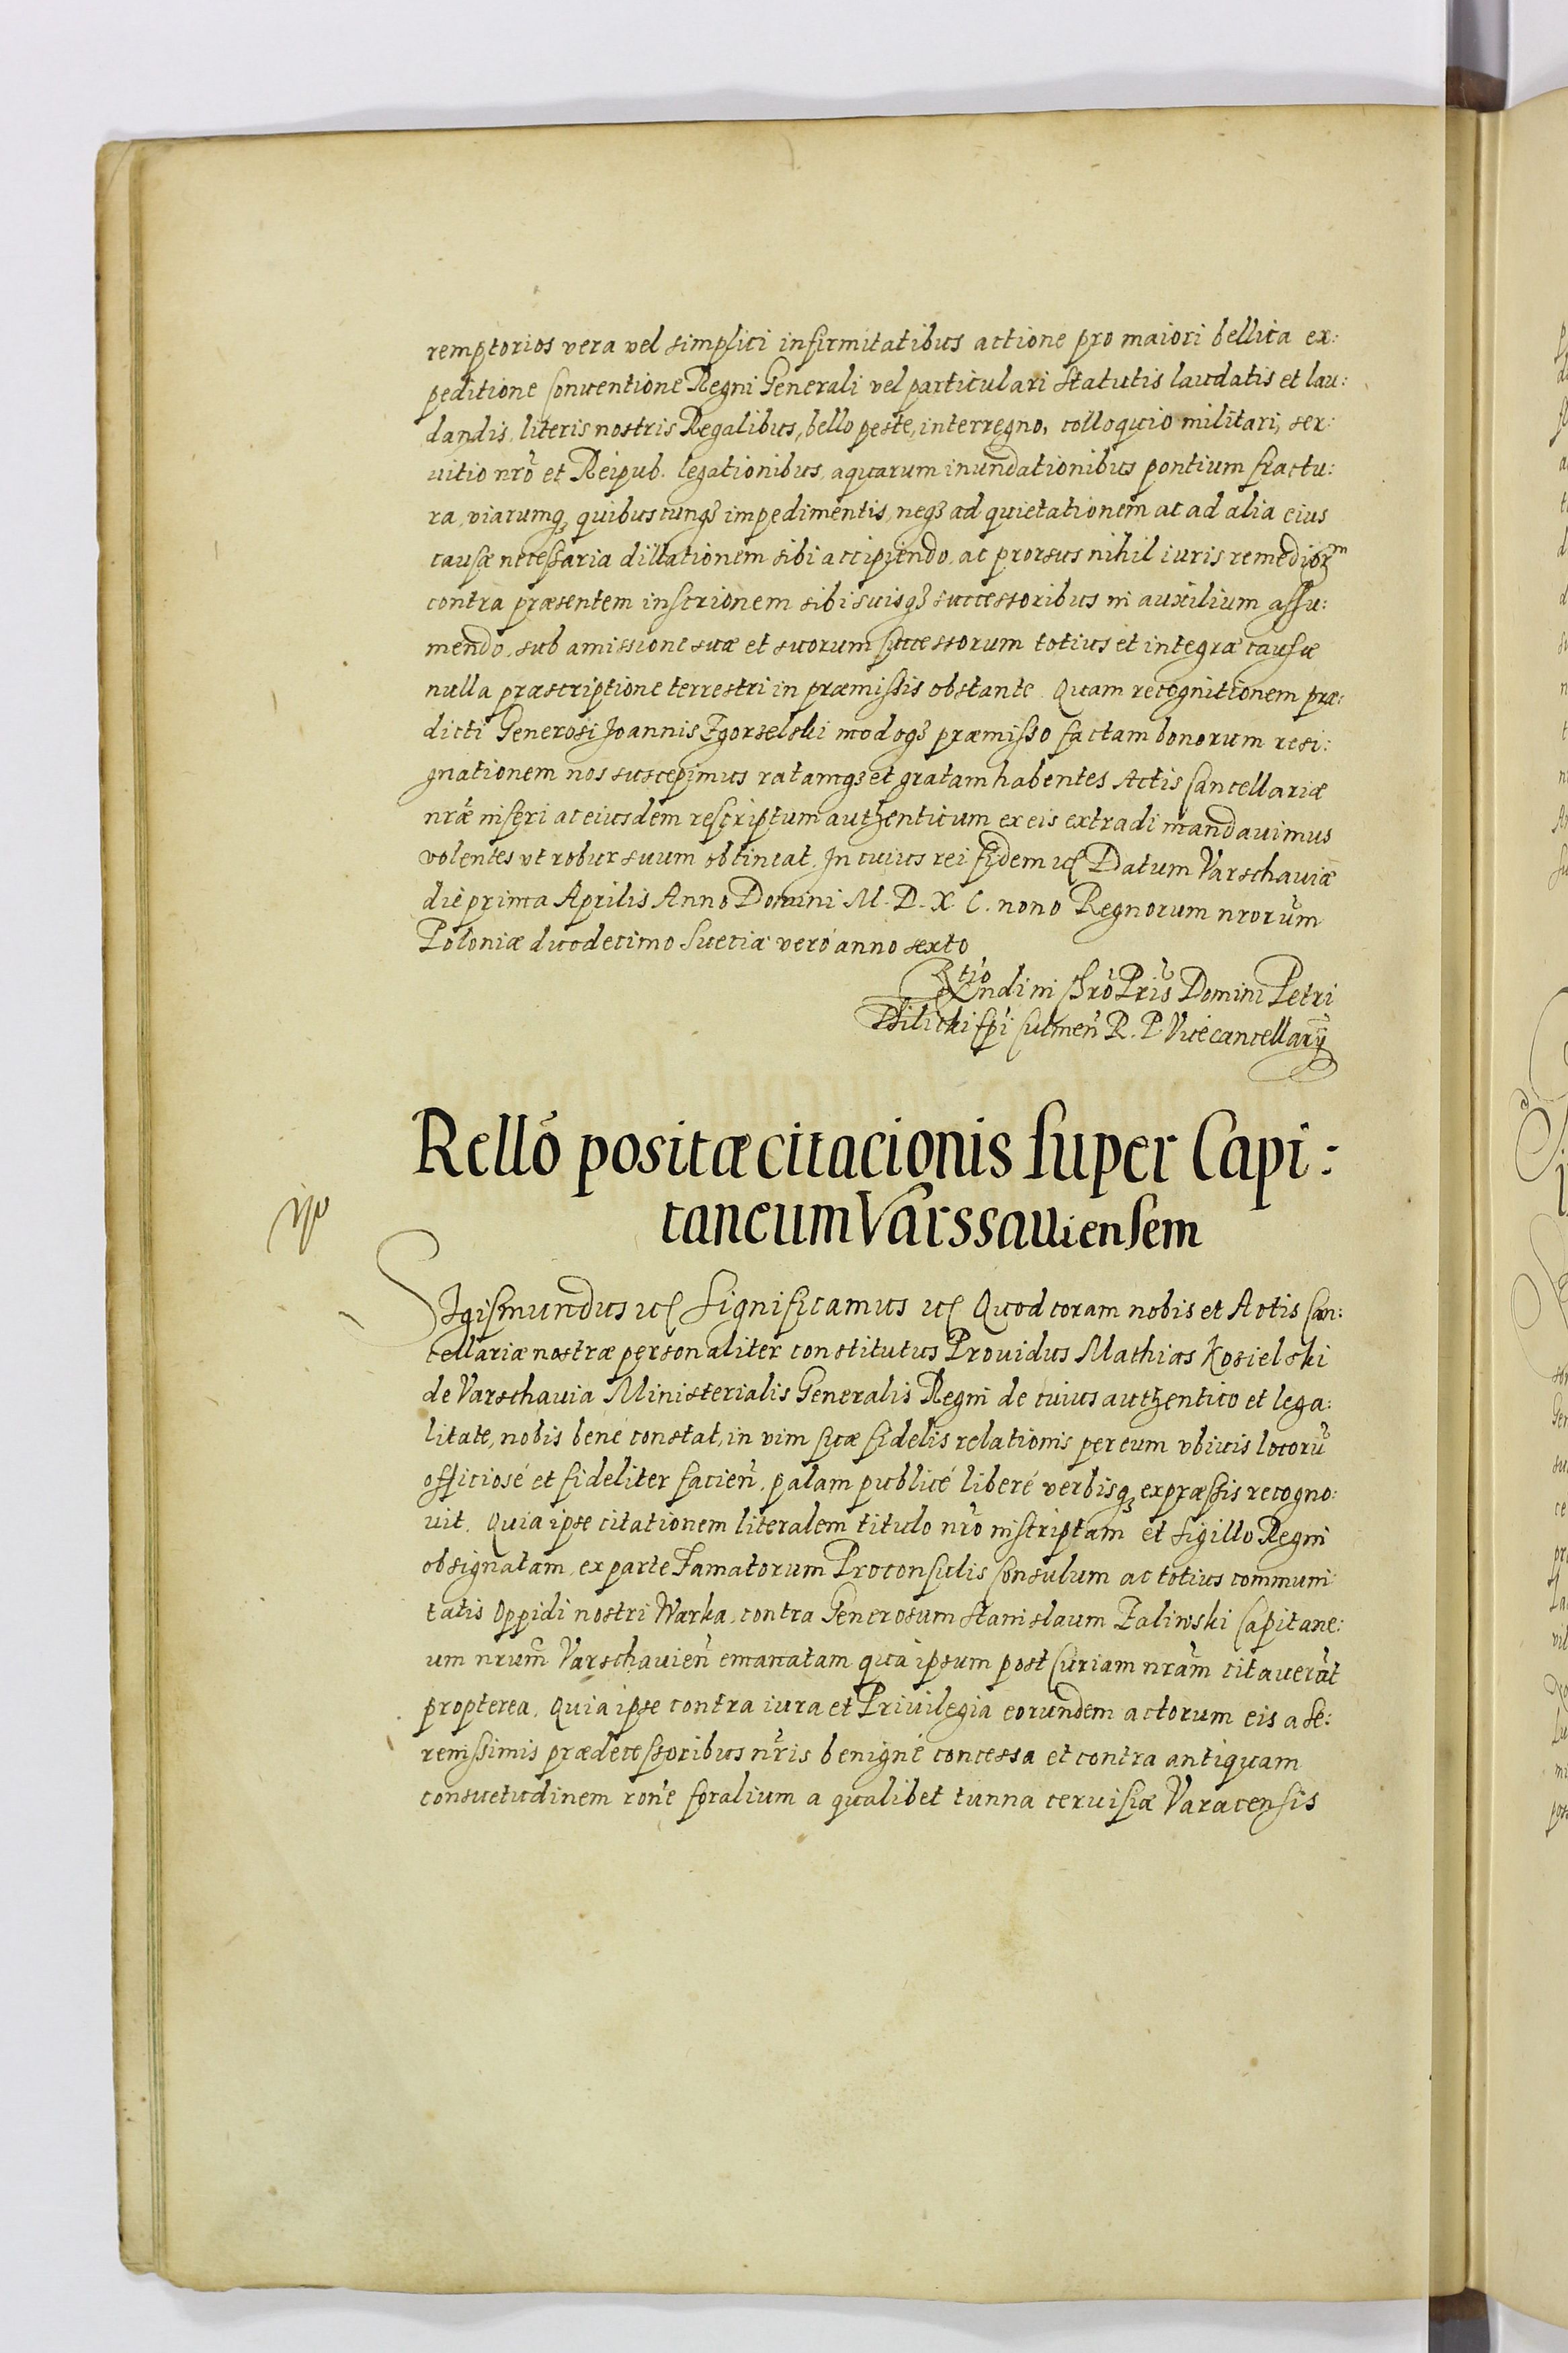 remptorios vera vel simplici infirmitatibus actione pro maiori bellica ex:
peditione Conventione Regni Generali vel particulari statutis laudatis et lau:
dandis, literis nostris Regalibus, bello peste, interregno, colloquio militari, ser:
uitio nrõ et Reipub. legationibus, aquarum inundationibus pontium fractu:
ra, viarumq₃ quibuscunq₃ impedimentis, neq₃ ad quietationem ac ad alia eius
causæ necessaria dillationem sibi accipiendo, ac prorsus nihil iuris remediorᵐ
contra præsentem inscrionem sibi suisq₃ successoribus in auxilium assu:
mendo, sub amissione suæ et suorum successorum totius et integræ causæ
nulla præscriptione terrestri in præmissis obstante. Quam recognitionem præ:
dicti Generosi Joannis Zgorzelski modoq₃ præmisso factam bonorum resi:
gnationem nos suscepimus ratamq₃ et gratam habentes Actis Cancellariæ
nræ̃ inseri ac eiusdem rescriptum authenticum ex eis extradi mandauimus
volentes vt robur suum obtineat. In cuius rei fidem ᵫc Datum Varschauiæ
die prima Aprilis Anno Domini M. D. X C. nono Regnorum nrorũm
Poloniæ duodecimo Sueciæ verò anno sexto
Rtio Rndi in Chrõ Pris̃ Domini Petri
Tilicki Epi Culmeñ R. P. Vicecancellarij
Rellõ positæ citacionis super Capi:
taneum Varssauiensem
SIgismundus ᵫc Significamus ᵫc Quod coram nobis et Actis Can:
cellariæ nostræ personaliter constitutus Prouidus Mathias Kosielski
de Varschauia Ministerialis Generalis Regni de cuius authentico et lega:
litate, nobis bene constat, in vim suæ fidelis relationis per eum vbiuis locorũ
officiosé et fideliter facieñ, palam publicé liberé verbisq₃ expræssis recogno:
uit. Quia ipse citationem literalem titulo nrõ inscriptam et sigillo Regni
obsignatam, ex parte Famatorum Proconsulis Consulum ac totius communi
tatis Oppidi nostri Warka, contra Generosum Stanislaum Zaliwski Capitane:
um nrum̃ Varschauieñ emanatam qua ipsum post Curiam nrãm citauerũt
propterea. Quia ipse contra iura et Priuilegia eorundem actorum eis a Se:
renissimis prædecessoribus nr̃is benigné concessa et contra antiquam
consuetudinem roñe foralium a qualibet tunna ceruisiæ Varacensis